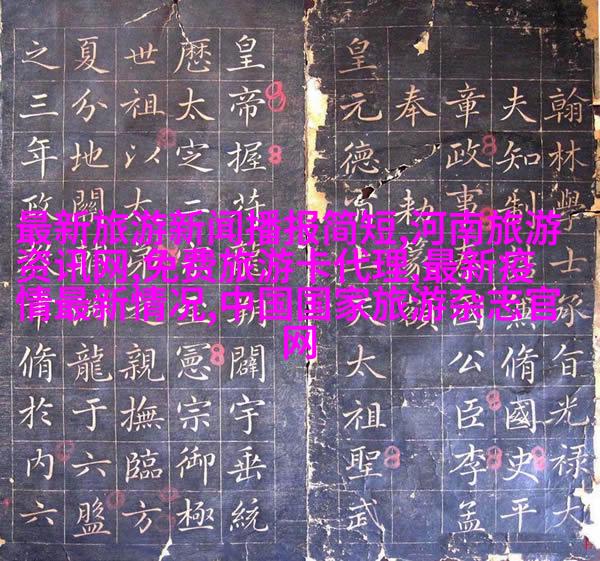 最新旅游新闻播报简短,河南旅游
资讯网,免费旅游卡代理,最新疫
情最新情况,中国国家旅游杂志官
网
翰林學士承旨光祿大
夫知制脩國史平
章政事公臣李孟
奉勑
皇元德太祖聖武
皇帝握符闢宇垂統
厯太定三憲宗御極
世祖以大親撫臨方
夏分地關龍于六盤
之三年脩於內六